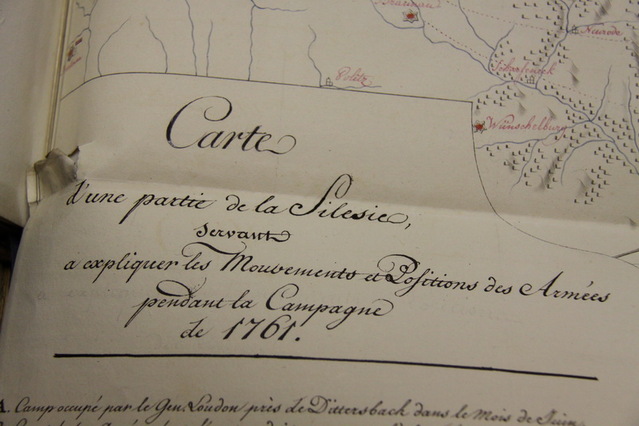 Braunau
Neurode
Scharfeneck
Politz
Wünschelburg
Carte
d'une partie de la Silesie,
servant
a expliquer les Mouvements et Positions des Armées
pendant la Campagne
de 1761.
A. Camp occupé par le Gen. Loudon près de Dittersbach dans le Mois de Juin